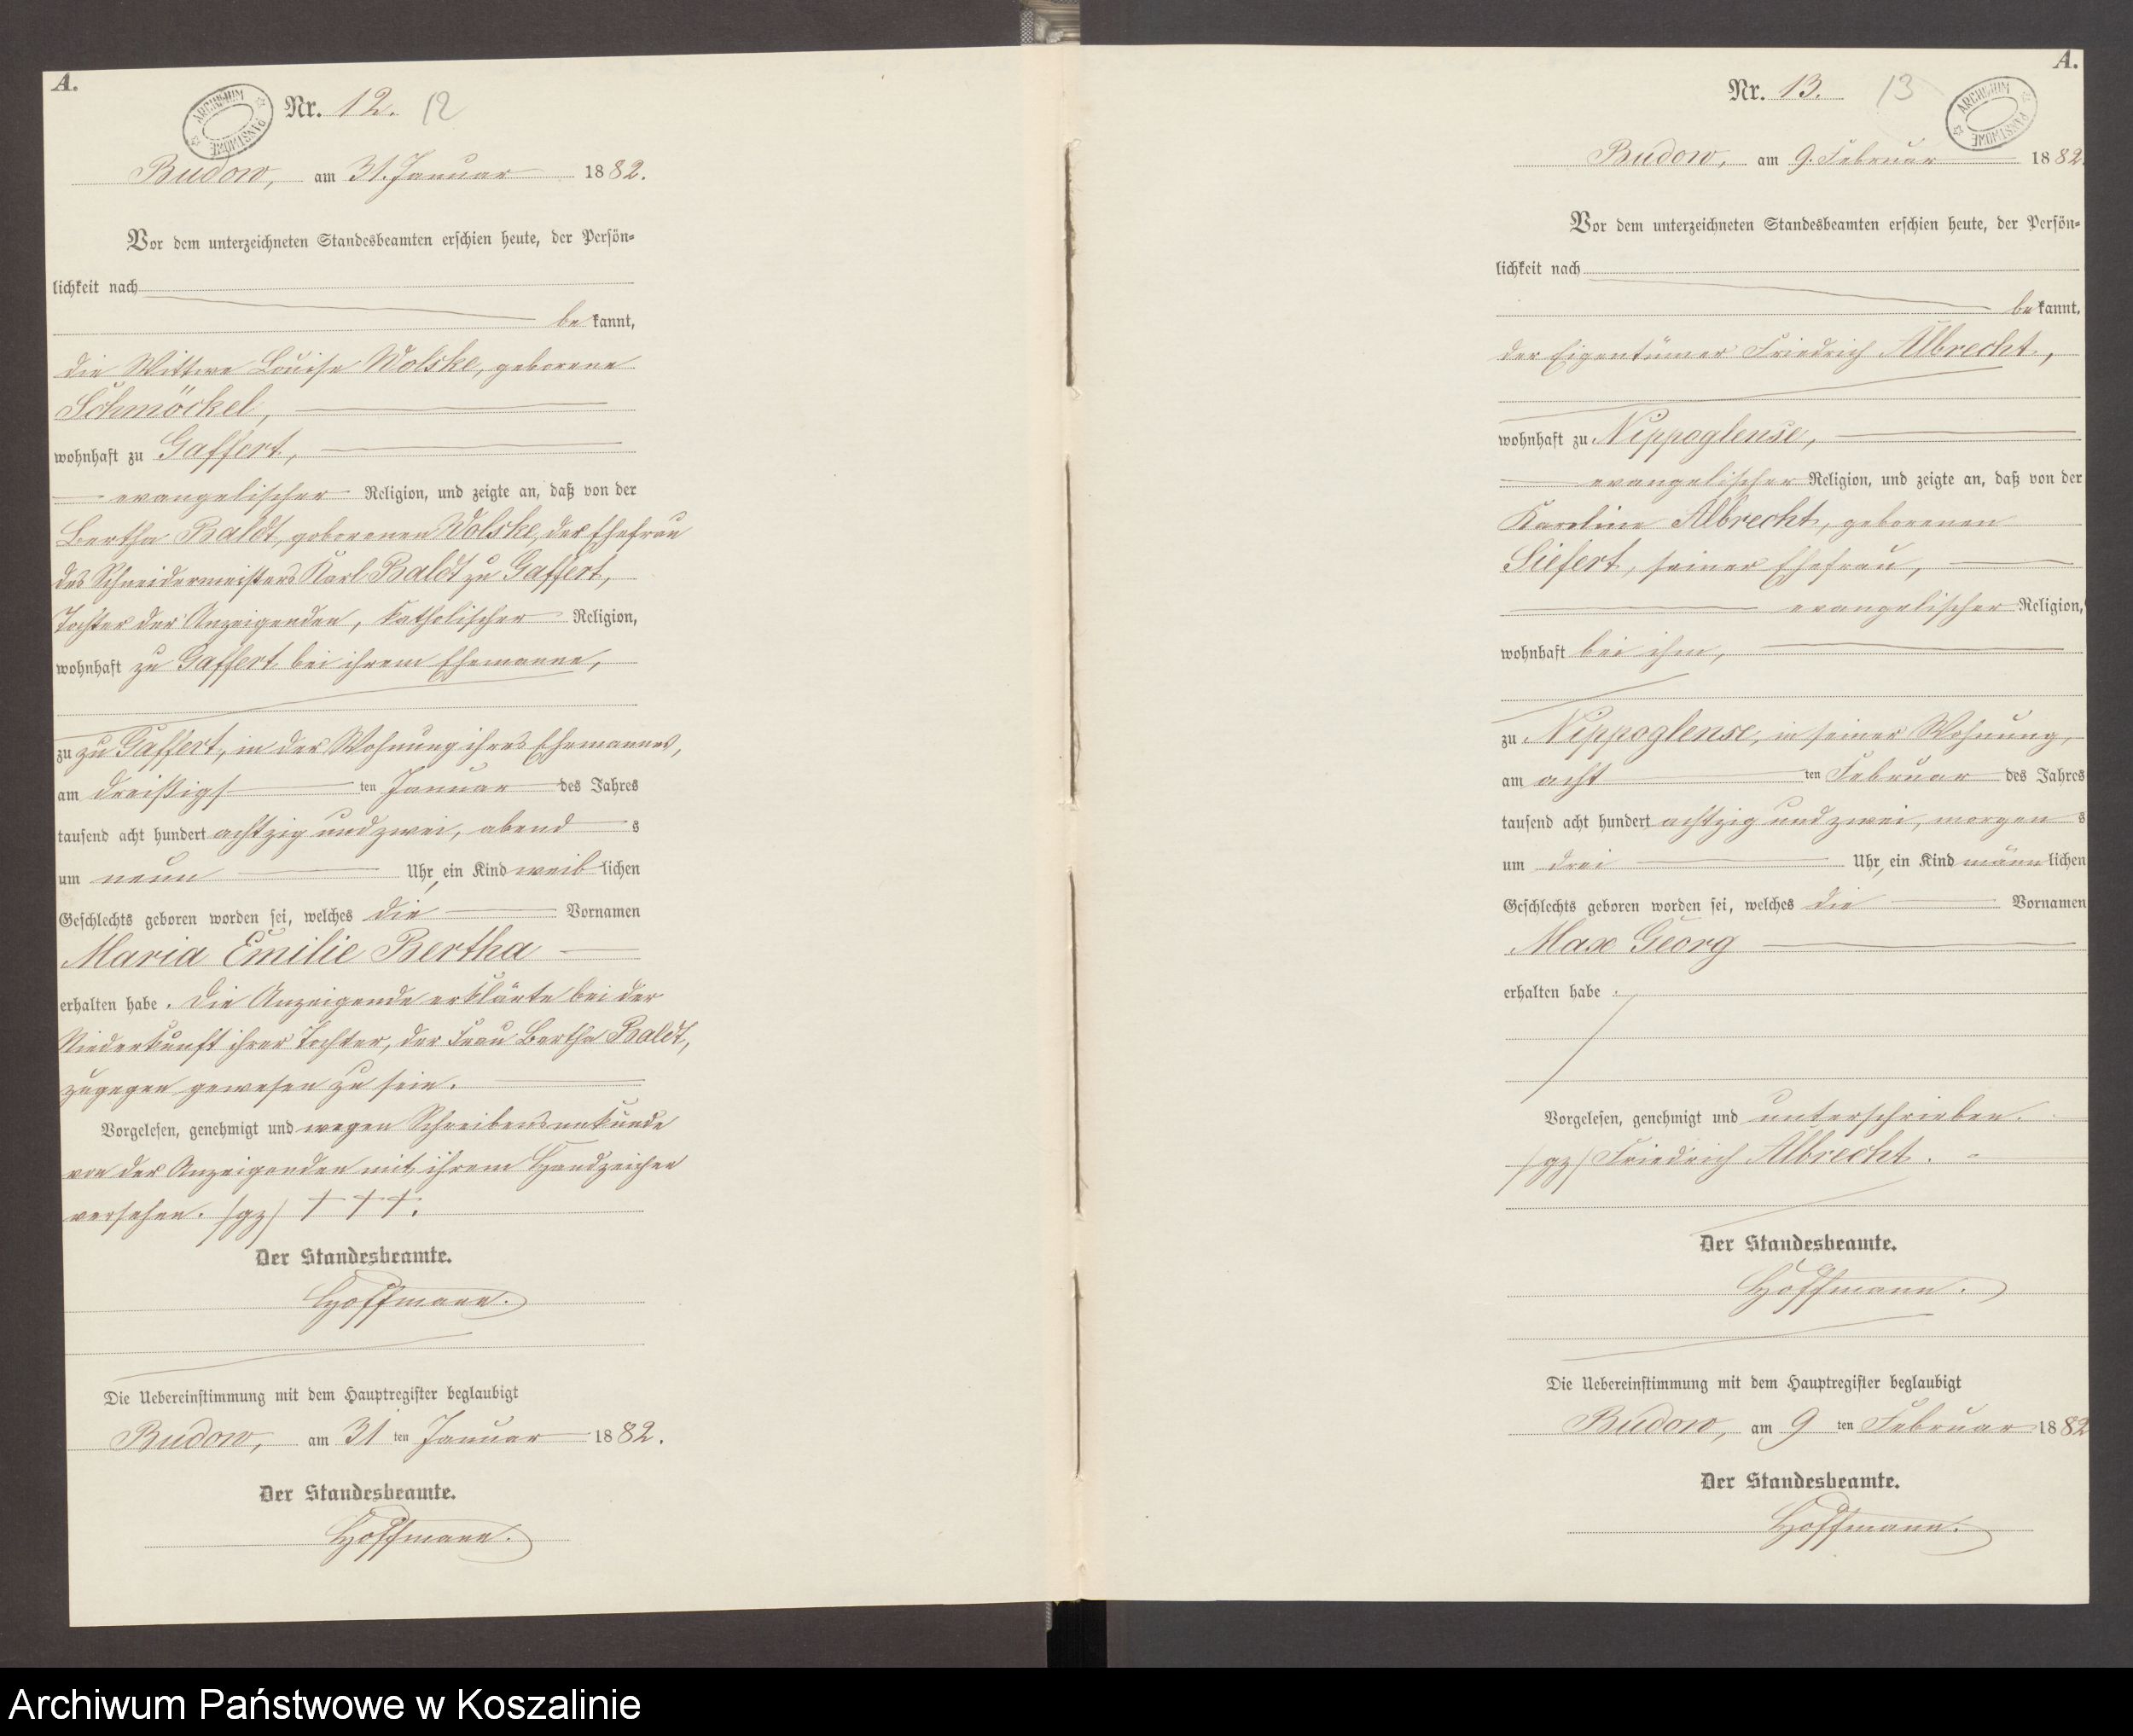 A.
ARCHIWUM PAŃSTWOWE
Nr. 12. 12
Budow, am 31. Januar 1882.
Vor dem unterzeichneten Standesbeamten erschien heute, der Persön-
lichkeit nach
bekannt,
die Wittwe Louise Wolske, geborene
Schmöckel,
wohnhaft zu Gaffert,
evangelischer Religion, und zeigte an, daß von der
Bertha Baldt, geborenen Wolske, der Ehefrau
des Schneidermeisters Karl Baldt zu Gaffert,
Tochter der Anzeigenden, katholischer Religion,
wohnhaft zu Gaffert bei ihrem Ehemanne,
zu zu Gaffert, in der Wohnung ihres Ehemannes,
am dreißigsten Januar des Jahres
tausend acht hundert achtzig und zwei, abends
um neun Uhr, ein Kind weiblichen
Geschlechts geboren worden sei, welches die Vornamen
Maria Emilie Bertha
erhalten habe. Die Anzeigende erklärte bei der
Niederkunft ihrer Tochter, der Frau Bertha Baldt,
zugegen gewesen zu sein.
Vorgelesen, genehmigt und wegen Schreibensunkunde
von der Anzeigenden mit ihrem Handzeichen
versehen. /gz/ +++.
Der Standesbeamte.
Hoffmann.
Die Uebereinstimmung mit dem Hauptregister beglaubigt
Budow, am 31 ten Januar 1882.
Der Standesbeamte.
Hoffmann.
A.
ARCHIWUM PAŃSTWOWE
Nr. 13. 13
Budow, am 9. Februar 1882.
Vor dem unterzeichneten Standesbeamten erschien heute, der Persön-
lichkeit nach
bekannt,
der Eigentümer Friedrich Albrecht,
wohnhaft zu Nippoglense,
evangelischer Religion, und zeigte an, daß von der
Karoline Albrecht, geborenen
Siefert, seiner Ehefrau,
evangelischer Religion,
wohnhaft bei ihm,
zu Nippoglense, in seiner Wohnung,
am acht ten Februar des Jahres
tausend acht hundert achtzig und zwei, morgens
um drei Uhr, ein Kind männlichen
Geschlechts geboren worden sei, welches die Vornamen
Max Georg
erhalten habe.
Vorgelesen, genehmigt und unterschrieben.
/gz/ Friedrich Albrecht.
Der Standesbeamte.
Hoffmann.
Die Uebereinstimmung mit dem Hauptregister beglaubigt
Budow, am 9 ten Februar 1882
Der Standesbeamte.
Hoffmann.
Archiwum Państwowe w Koszalinie